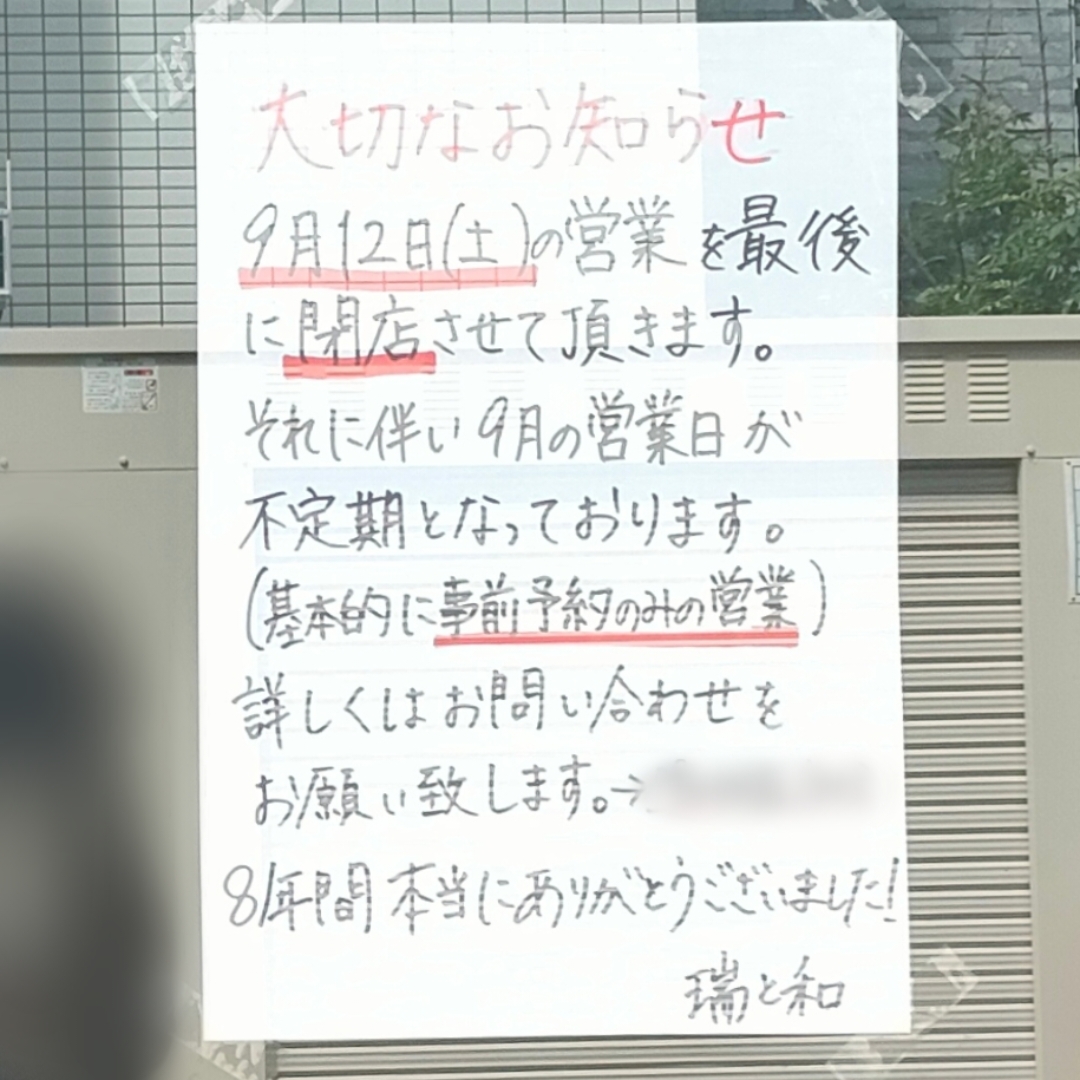 大切なお知らせ
9月12日(土)の営業を最後
に閉店させて頂きます。
それに伴い9月の営業日が
不定期となっております。
(基本的に事前予約のみの営業)
詳しくはお問い合わせを
お願い致します。→
8年間本当にありがとうございました!
瑞と和